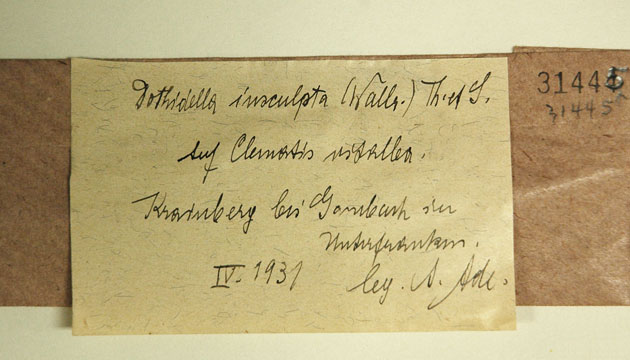 Dothidella insculpta (Wallr.) Th. et S.
auf Clematis vitalba.
Krainberg bei Gambach in
Unterfranken.
IV. 1931 leg. A. Ade.
31445
31445